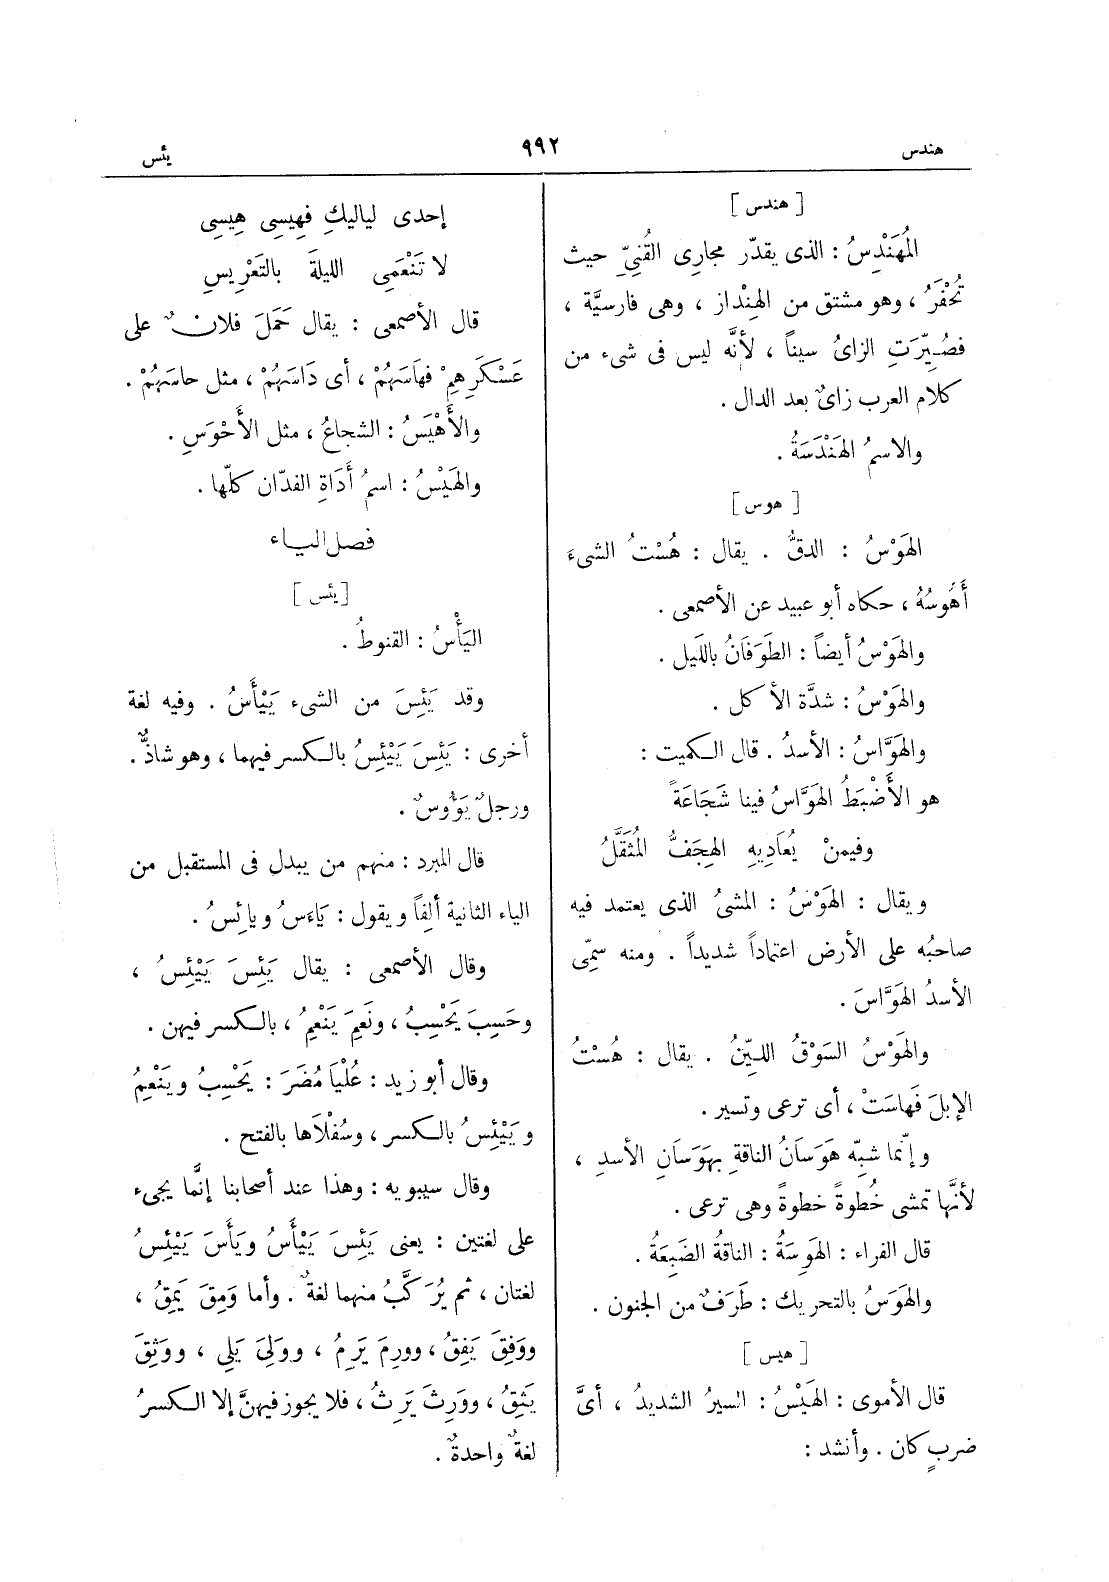 هندس
٩٩٢
يئس
[ هندس ]
المُهَنْدِسُ : الذى يقدّر مجارى القُنِىِّ حيث
تُحْفَرُ ، وهو مشتق من الهِنْداز ، وهى فارسيَّة ،
فصُيِّرَتِ الزاىُ سيناً ، لأنَّه ليس فى شىء من
كلام العرب زاىٌ بعد الدال .
والاسمُ الهَنْدَسَةُ .
[ هوس ]
الهَوْسُ : الدقُّ . يقال : هُسْتُ الشىءَ
أَهُوسُهُ ، حكاه أبو عبيد عن الأصمعى .
والهَوْسُ أيضاً : الطَوَفَانُ بالليل .
والهَوْسُ : شدَّة الأكل .
والهَوَّاسُ : الأسدُ . قال الكميت :
هو الأَضْبَطُ الهَوَّاسُ فينا شَجَاعَةً
وفيمنْ يُعَادِيهِ الهِجَفُّ المُثَقَّلُ
ويقال : الهَوْسُ : المشىُ الذى يعتمد فيه
صاحبُه على الأرض اعتماداً شديداً . ومنه سمِّى
الأسدُ الهَوَّاسَ .
والهَوْسُ السَوْقُ الليِّنُ . يقال : هُسْتُ
الإبلَ فَهاسَتْ ، أى ترعى وتسير .
وإنّما شبِّه هَوَسَانُ الناقةِ بهَوَسَانِ الأسدِ ،
لأنَّها تمشى خُطوةً خطوةً وهى ترعى .
قال الفراء : الهَوِسَةُ : الناقةُ الضَبِعَةُ .
والهَوَسُ بالتحريك : طَرَفٌ من الجنون .
[ هيس ]
قال الأموى : الهَيْسُ : السيرُ الشديدُ ، أىَّ
ضربٍ كان . وأنشد :
إحدى لياليكِ فهِيسِى هِيسِى
لا تَنْعَمِى الليلةَ بالتَعْرِيسِ
قال الأصمعى : يقال حَمَلَ فلانٌ على
عَسْكَرِهِمْ فهَاسَهُمْ ، أى دَاسَهُمْ ، مثل حاسَهُمْ .
والأَهْيَسُ : الشجاعُ ، مثل الأَحْوَسِ .
والهَيْسُ : اسمُ أَدَاةِ الفدّان كلّها .
فصل الياء
[ يئس ]
اليَأْسُ : القنوطُ .
وقد يَئِسَ من الشىء يَيْأَسُ . وفيه لغة
أخرى : يَئِسَ يَيْئِسُ بالكسر فيهما ، وهو شاذٌّ .
ورجلٌ يَؤُوسٌ .
قال المبرد : منهم من يبدل فى المستقبل من
الياء الثانية ألِفاً ويقول : يَاءَسُ ويائِسُ .
وقال الأصمعى : يقال يَئِسَ يَيْئِسُ ،
وحَسِبَ يَحْسِبُ ، ونَعِمَ يَنْعِمُ ، بالكسر فيهن .
وقال أبو زيد : عُلْيَا مُضَرَ : يَحْسِبُ ويَنْعِمُ
ويَيْئِسُ بالكسر ، وسُفْلَاها بالفتح .
وقال سيبويه : وهذا عند أصحابنا إنَّما يجىء
على لغتين : يعنى يَئِسَ يَيْأَسُ ويَأَسَ يَيْئِسُ
لغتان ، ثم يُرَكَّبُ منهما لغةٌ . وأما وَمِقَ يَمِقُ ،
ووَفِقَ يَفِقُ ، وورِمَ يَرِمُ ، وولِىَ يَلِى ، ووثِقَ
يَثِقُ ، وورِثَ يَرِثُ ، فلا يجوز فيهنَّ إلا الكسرُ
لغةٌ واحدةٌ .